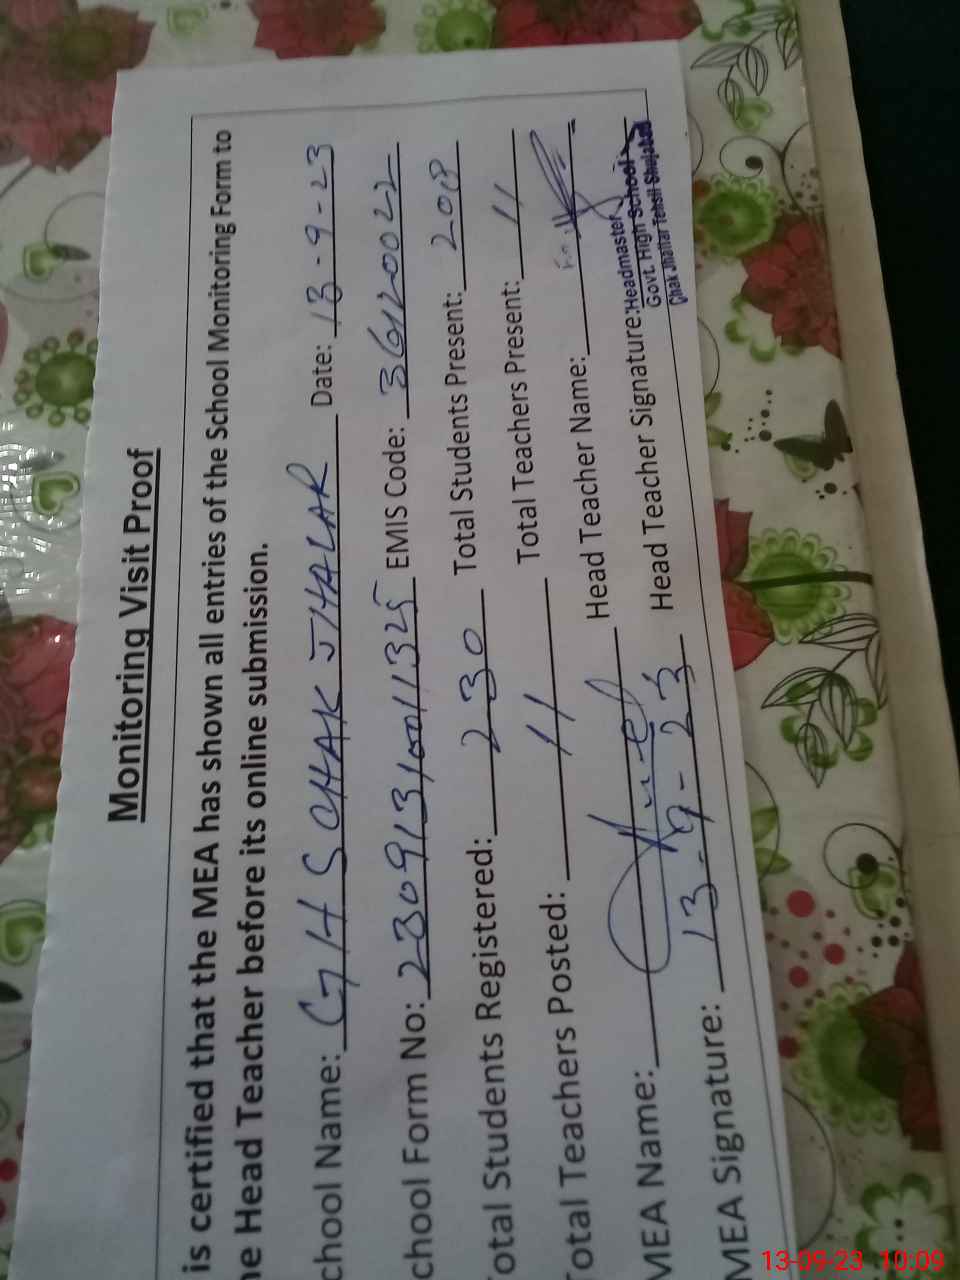 Monitoring Visit Proof
is certified that the MEA has shown all entries of the School Monitoring Form to
he Head Teacher before its online submission.
chool Name: GHS CHAK JHALAR Date: 13-9-23
chool Form No: EMIS Code: 36120022
Total Students Registered: 230 Total Students Present: 208
Total Teachers Posted: 11 Total Teachers Present: 11
MEA Name: Head Teacher Name:
MEA Signature: 13-9-23 Head Teacher Signature: Headmaster
Govt. High School
Chak Jhallar Tehsil Shujabad
13-09-23 10:09